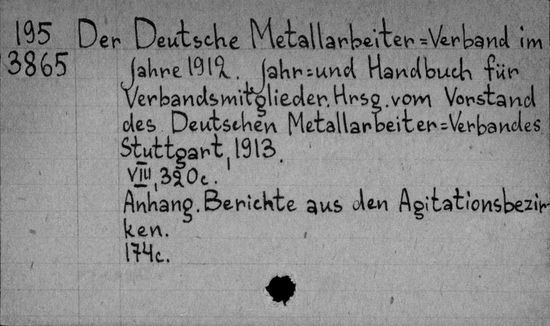 195 Der Deutsche Metallarbeiter=Verband im
3865 Jahre 1912. Jahr=und Handbuch für
Verbandsmitglieder. Hrsg. vom Vorstand
des Deutschen Metallarbeiter=Verbandes
Stuttgart, 1913.
VIII, 320c.
Anhang. Berichte aus den Agitationsbezir-
ken.
174c.